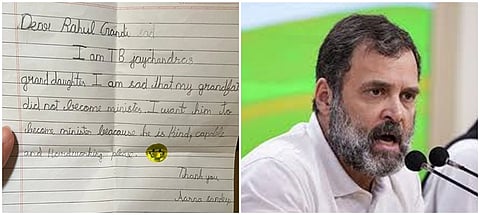 Dear Rahul Gandi
I am TB jaychandras
granddaughter. I am sad that my grandfat
did not become minister. I want him to
become minister beacause he is Kind, capable
and Hardworking
Thank you